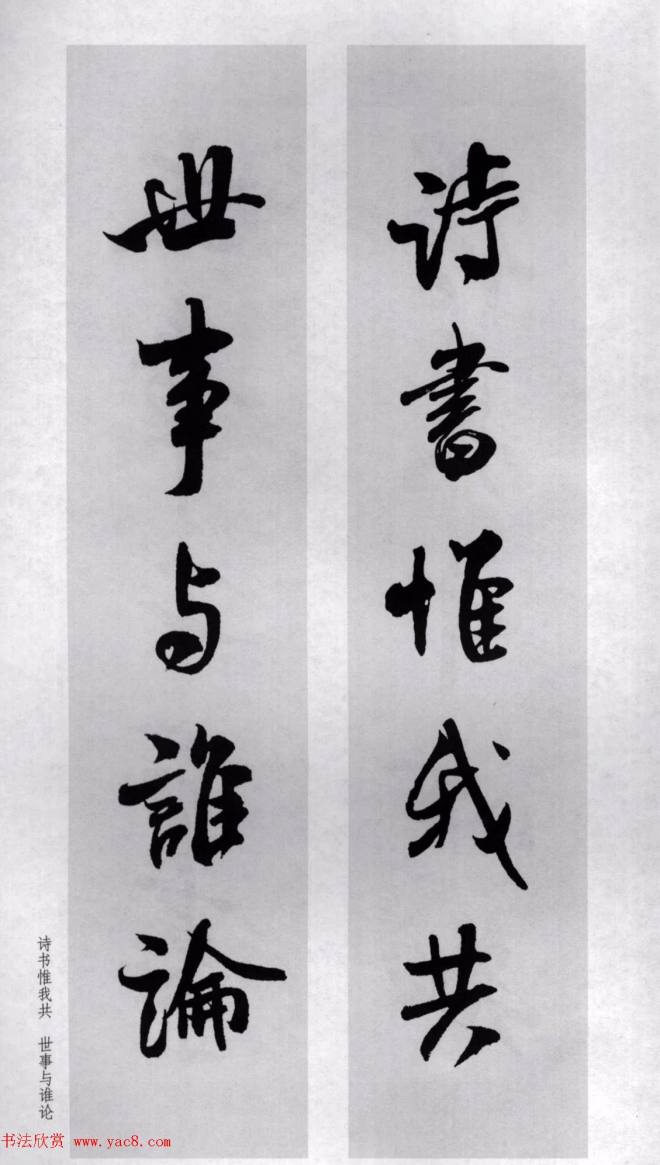 詩書惟我共
世事与誰論
诗书惟我共 世事与谁论
书法欣赏 www.yac8.com